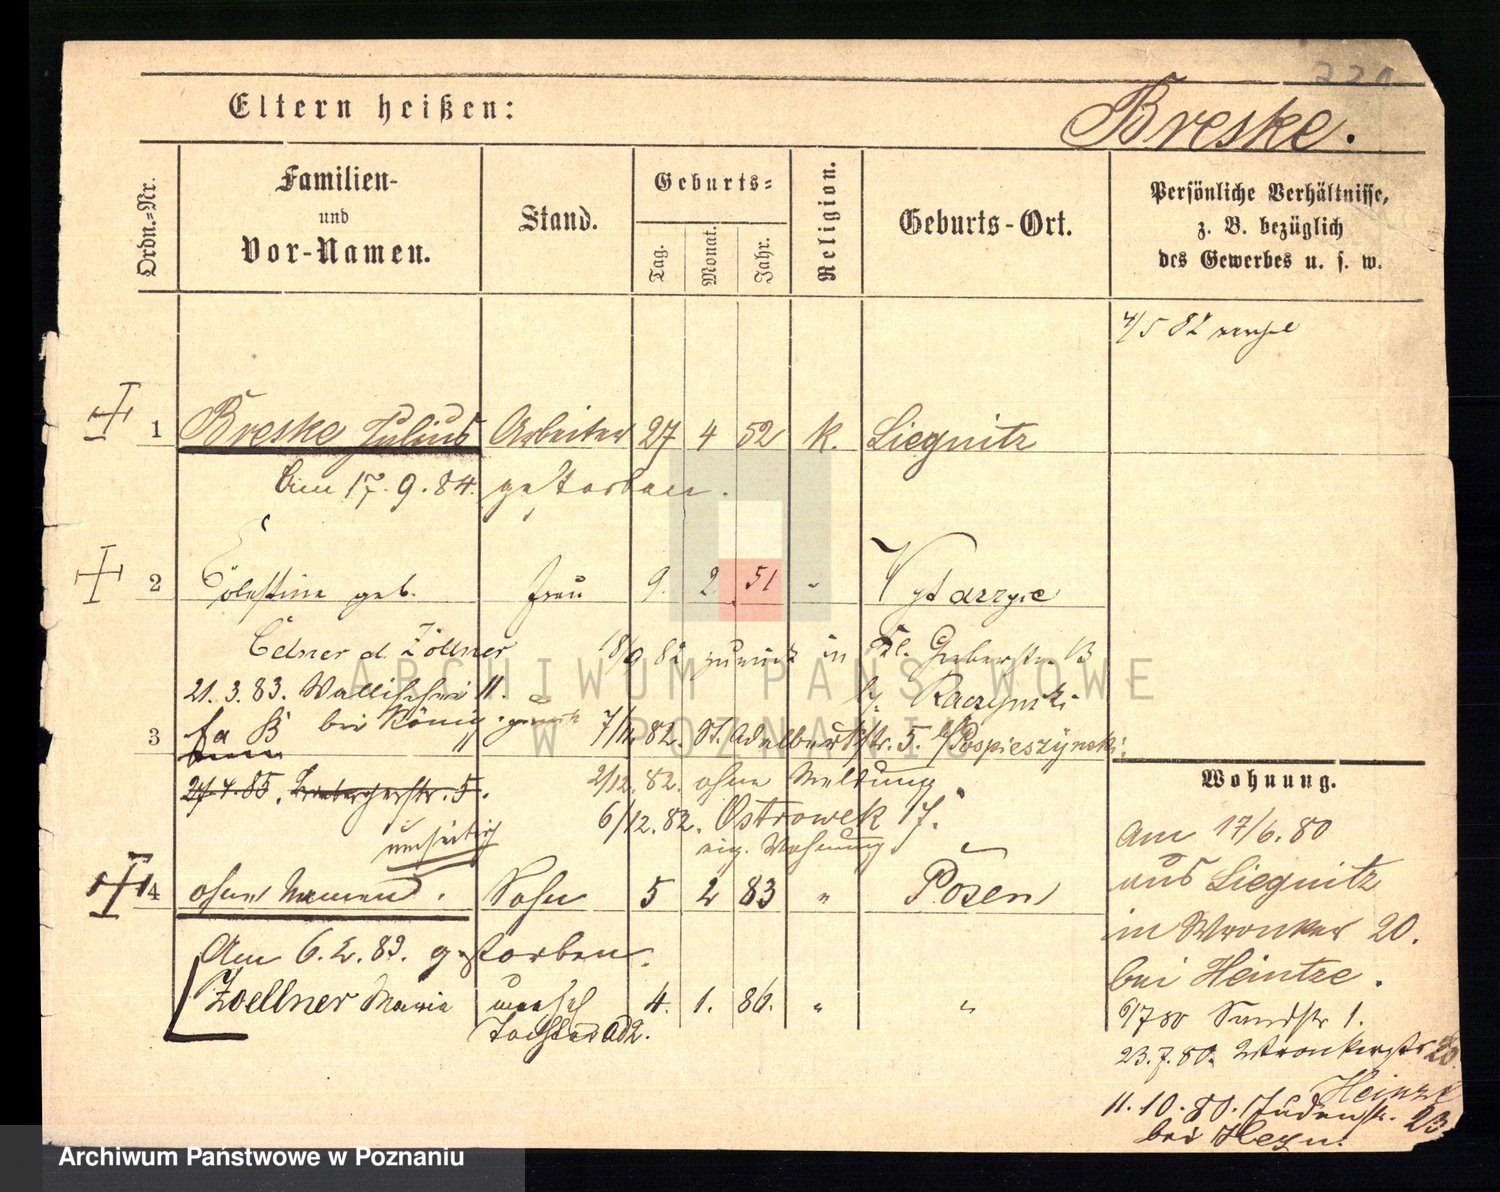 Eltern heißen:
Breske.
Ordn.-Nr.
Familien-
und
Vor-Namen.
Stand.
Geburts-
Tag.
Monat.
Jahr.
Religion.
Geburts-Ort.
Persönliche Verhältnisse,
z. B. bezüglich
des Gewerbes u. s. w.
4/5 82
1 Breske Julius Arbeiter 27 4 52 k. Liegnitz
Am 17.9.84. gestorben.
2 Cölestine geb. Frau 9. 2. 51 "
Zöllner 18/9 82 zurück in Kl. Gerberstr. 13
21.3.83. Wallischei 11. by Raczynski
3 fa B bei König 7/11 82. St. Adalbertstr. 5. b/Pospieszynski.
27.4.85. 5. 2/12. 82. ohne Meldung
umseitig 6/12.82. Ostrowek 17.
eig. Wohnung
4 ohne Namen. Sohn 5 2 83 " Posen
Am 6.2.83. gestorben.
Zoellner Maria unehel 4. 1. 86. " "
Tochter ad 2.
Wohnung.
Am 17/6. 80
aus Liegnitz
in Wronker 20.
bei Heintze.
6/7 80 Sandstr 1.
23.7.80. Wronkerstr 20
Heinze
11.10.80. Judenstr. 23
bei
ARCHIWUM PAŃSTWOWE
W POZNANIU
Archiwum Państwowe w Poznaniu